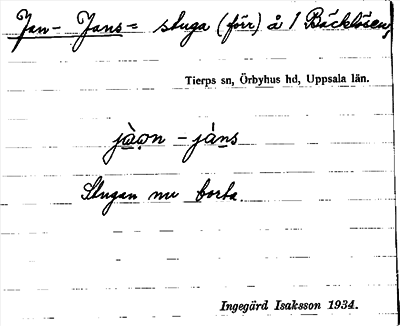 Jan-Jans= stuga (förr) å / Bäcklösen,
Tierps sn, Örbyhus hd, Uppsala län.
jàωn - jáns
Stugan nu borta.
Ingegärd Isaksson 1934.